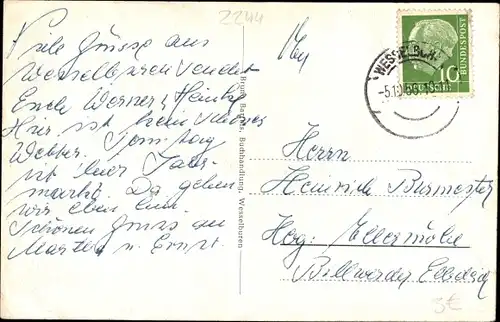 2244
Viele Grüsse aus
Wesselburen sendet
Euch Werner, Heinke
Hier ist kein
Wetter. Sonntag
ist hier Jahr-
markt. Da gehen
wir eben hin.
Schönen Gruss an
Martha u. Ernst.
Bruno Buchhandlung, Wesselburen
WESSELBUR
-5.10
10
DEUTSCHE
BUNDESPOST
Herrn
Heinrich Burmester
Hbg: Ellermühle
Billwerder Elbdeich
3€